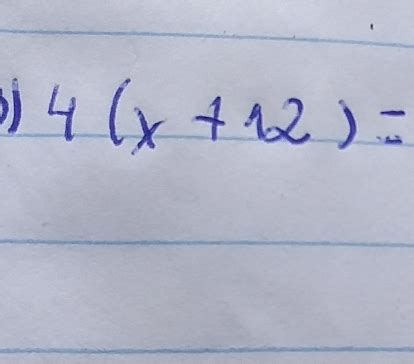 b) 4 (x + 12) =